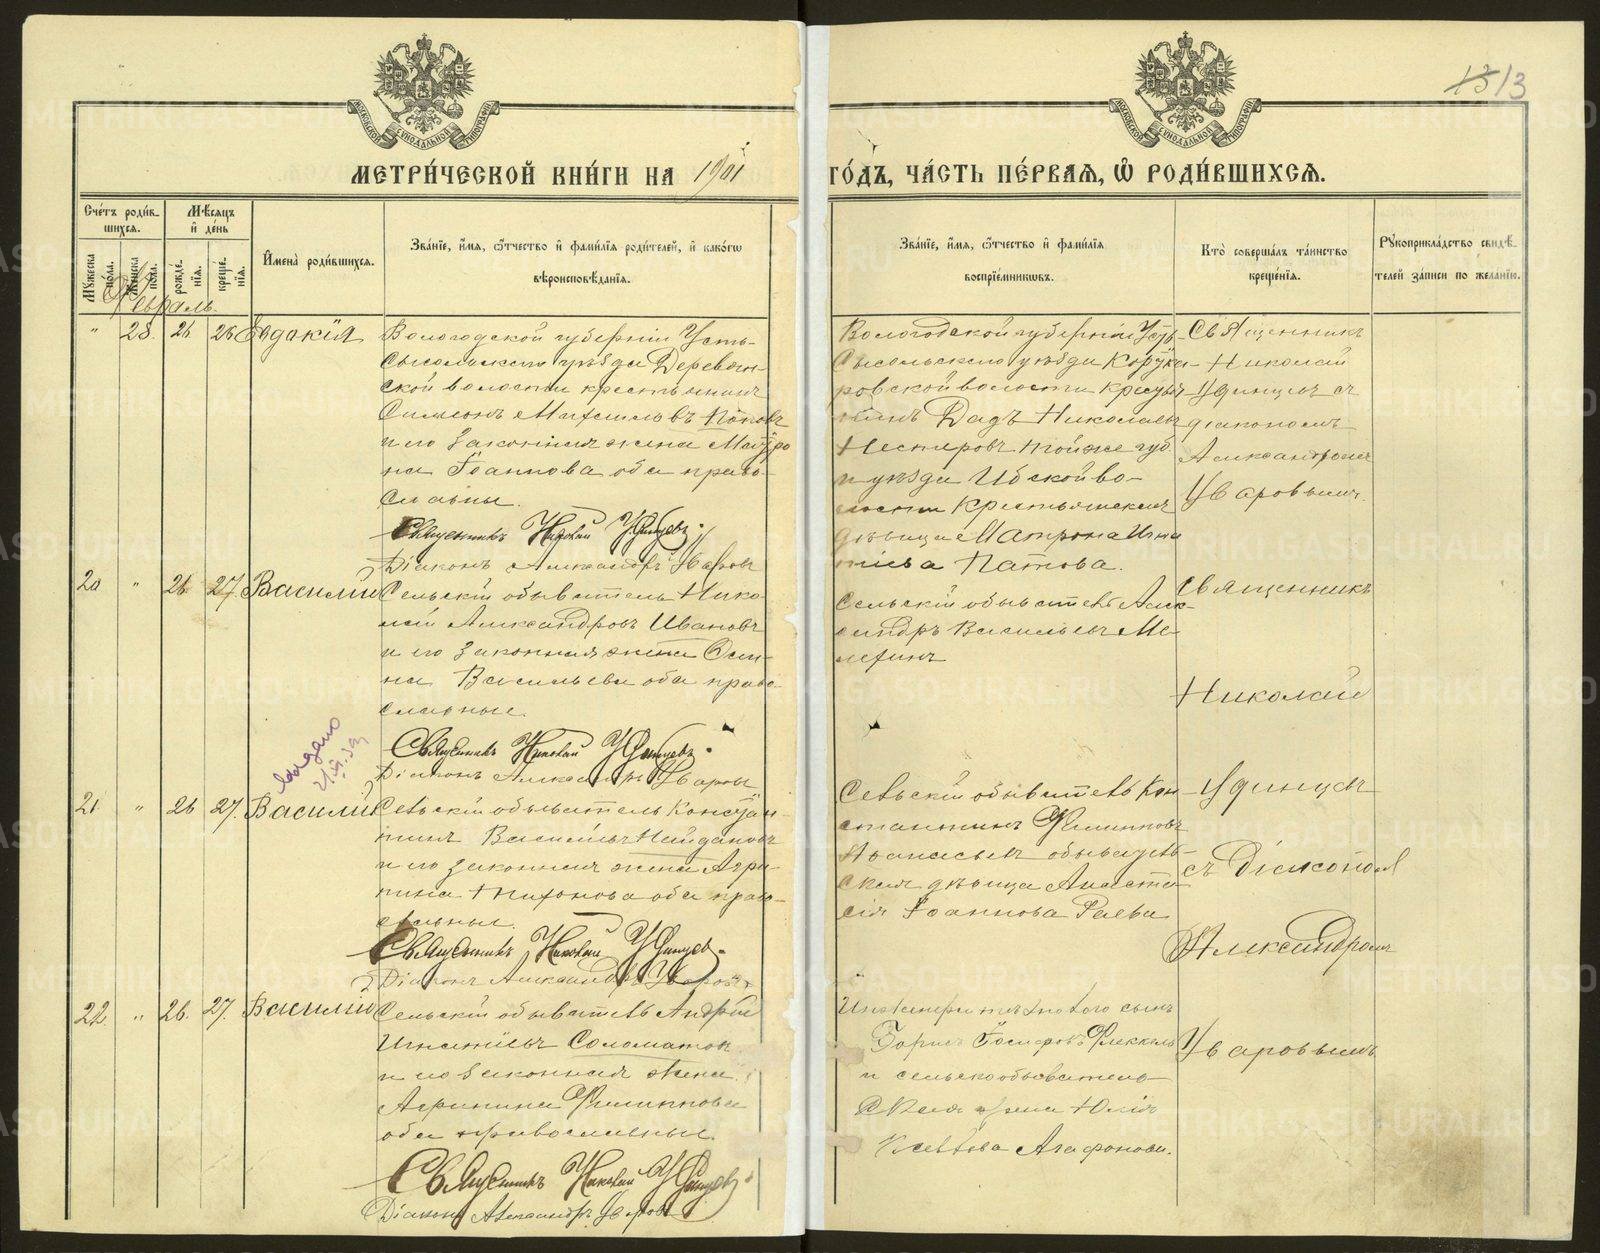 1313
МОСКОВСКОЙ СѴНОДАЛЬНОЙ ТИПОГРАФІИ
МОСКОВСКОЙ СѴНОДАЛЬНОЙ ТИПОГРАФІИ
МЕТРИ́ЧЕСКОЙ КНИ́ГИ НА 1901
ГО́ДЪ, ЧА́СТЬ ПЕ́РВАЯ, Ѡ РОДИ́ВШИХСЯ.
Сче́тъ роди́вшихся.
Мѣ́сяцъ и де́нь
Му́жеска по́ла.
Же́нска по́ла.
рожде́нія.
креще́нія.
Имена̀ роди́вшихся.
Зва́ніе, и́мя, ѻ҆́тчество и фами́лія роди́телей, и како́гѡ
вѣроисповѣ́данія.
Зва́ніе, и́мя, ѻ҆́тчество и фами́лія
воспріе́мниковъ.
Кто̀ соверша́лъ та́инство
креще́нія.
Рꙋкоприкла́дство свидѣ́телей за́писи по жела́нію.
Февраль.
" 28. 26 26 Евдокія
Вологодской губерніи Усть-
Сысольскаго уѣзда Деревян-
ской волости крестьянинъ
Симеонъ Попов
и его законная жена Матро
на Іоаннова оба право-
славны.
Священникъ Николай Удинцевъ.
Діаконъ Александръ Уваровъ
Вологодской губерніи Усть-
Сысольскаго уѣзда
ровской волости кресть
янинъ Николаевъ
Нестеровъ той же губ
и уѣзда Ибской во-
лости крестьянская
дѣвица Матрона Игна
тіева Патова.
Священникъ
Николай
Удинцевъ съ
діакономъ
Александромъ
Уваровымъ.
20 " 26 27. Василій
Сельскій обыватель Нико-
лай Александровъ Ивановъ
и его законная жена
на Васильева оба право-
славные.
Священникъ Николай Удинцевъ.
Діаконъ Александръ Уваровъ
Сельскій обыватель Алек-
сандръ Васильевъ Ме-
Священникъ
Николай
Удинцевъ
съ Діакономъ
Александромъ
Уваровымъ
21 " 26 27. Василій
Сельскій обыватель Констан-
тинъ Васильевъ Найдановъ
и его законная жена Агри-
пина Тихонова оба право-
славные.
Священникъ Николай Удинцевъ.
Діаконъ Александръ Уваровъ.
Сельскій обыватель Кон-
стантинъ Филипповъ
Афанасьевъ обыватель-
ская дѣвица Анаста
сія Іоаннова
22. " 26. 27. Василій
Сельскій обыватель Андрей
Игнатіевъ Соломатов
и его законная жена
Агрипина Филиппова
оба православные.
Священникъ Николай Удинцевъ.
Діаконъ Александръ Уваровъ
сынъ
Борисъ Іосифовъ
и сельскообыватель-
ская Юлія
Агафонова.